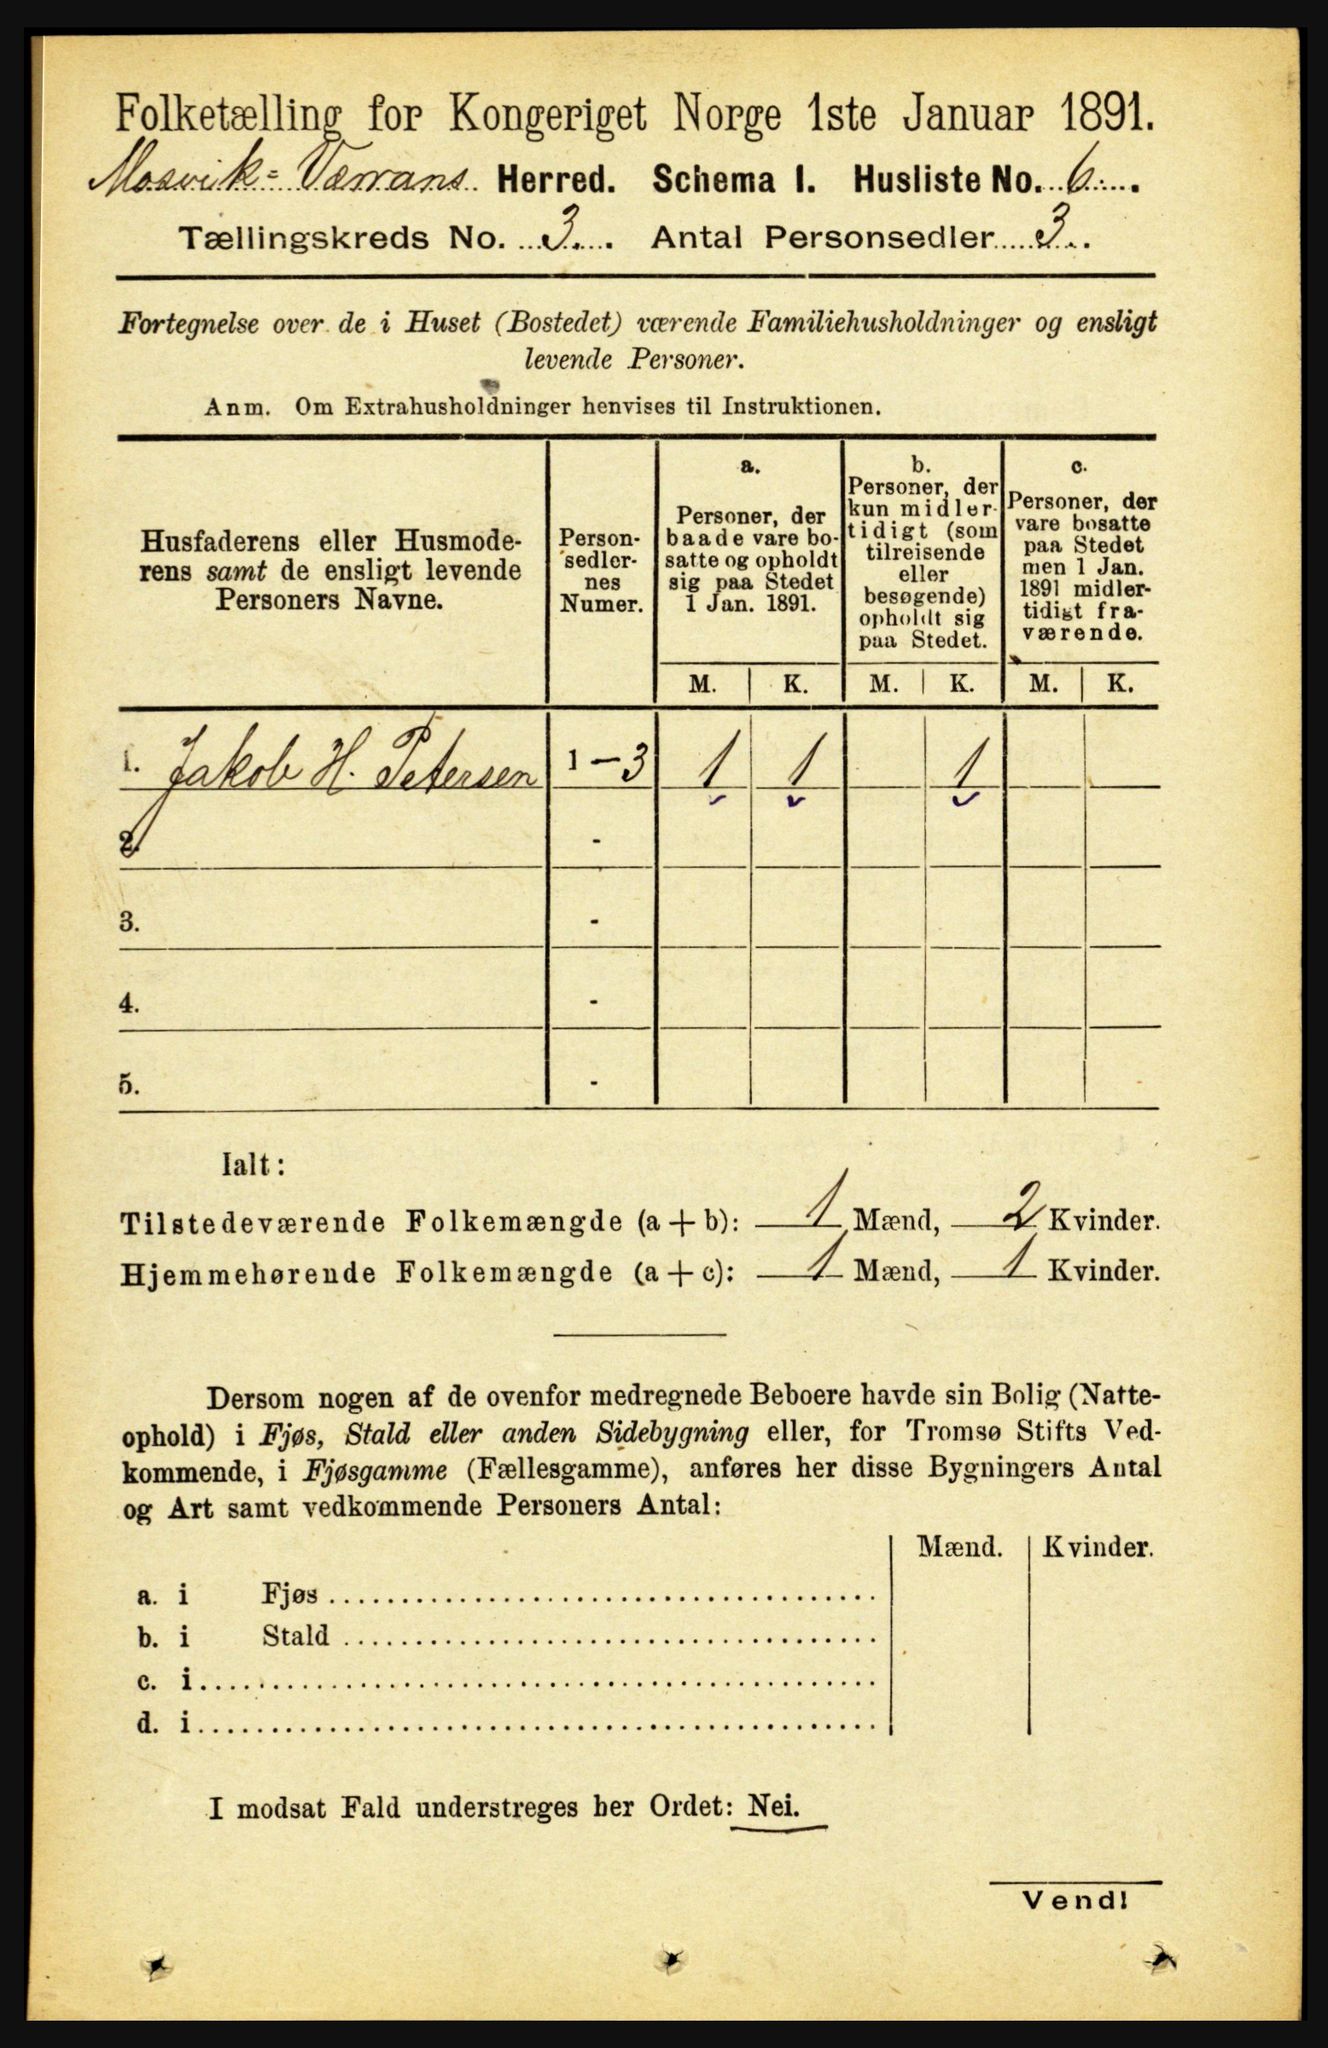 Folketælling for Kongeriget Norge 1ste Januar 1891.
Mosvik-Værrans Herred. Schema I. Husliste No. 6
Tællingskreds No. 3. Antal Personsedler 3.
Fortegnelse over de i Huset (Bostedet) værende Familiehusholdninger og ensligt
levende Personer.
Anm. Om Extrahusholdninger henvises til Instruktionen.
Husfaderens eller Husmode-
rens samt de ensligt levende
Personers Navne.
Person-
sedler-
nes
Numer.
a.
Personer, der
baade vare bo-
satte og opholdt
sig paa Stedet
1 Jan. 1891.
b.
Personer, der
kun midler-
tidigt (som
tilreisende
eller
besøgende)
opholdt sig
paa Stedet.
c.
Personer, der
vare bosatte
paa Stedet
men 1 Jan.
1891 midler-
tidigt fra-
værende.
M. K. M. K. M. K.
1. Jakob H. Petersen 1-3 1 1 1
2. -
3. -
4. -
5. -
Ialt:
Tilstedeværende Folkemængde (a + b): 1 Mænd, 2 Kvinder.
Hjemmehørende Folkemængde (a + c): 1 Mænd, 1 Kvinder.
Dersom nogen af de ovenfor medregnede Beboere havde sin Bolig (Natte-
ophold) i Fjøs, Stald eller anden Sidebygning eller, for Tromsø Stifts Ved-
kommende, i Fjøsgamme (Fællesgamme), anføres her disse Bygningers Antal
og Art samt vedkommende Personers Antal:
Mænd. Kvinder.
a. i Fjøs
b. i Stald
c. i
d. i
I modsat Fald understreges her Ordet: Nei.
Vend!